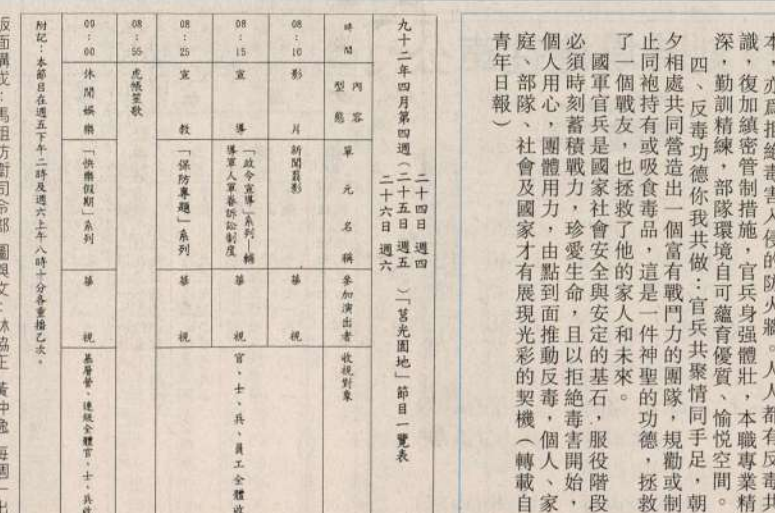 本，亦爲拒絶毒害入侵的防火牆。人人都有反毒共
識，復加縝密管制措施，官兵身强體壯，本職專業精
深，勤訓精練，部隊環境自可蘊育優質、愉悦空間。
四、反毒功德你我共做：官兵共聚情同手足，朝
夕相處共同營造出一個富有戰鬥力的團隊，規勸或制
止同袍持有或吸食毒品，這是一件神聖的功德，拯救
了一個戰友，也拯救了他的家人和未來。
國軍官兵是國家社會安全與安定的基石，服役階段
必須時刻蓄積戰力，珍愛生命，且以拒絶毒害開始，
個人用心，團體用力，由點到面推動反毒，個人、家
庭、部隊、社會及國家才有展現光彩的契機（轉載自
青年日報）
九十二年四月第四週（二十四日 週四 二十五日 週五 二十六日 週六）「莒光園地」節目一覽表
時間 內容型態 單元名稱 參加演出者 收視對象
08：10 影片 新聞剪影 華視
08：15 宣導 「政令宣導」系列—輔導軍人軍眷訴訟制度 華視
08：25 宣教 「保防專題」系列 華視
官、士、兵、員工全體收
08：55 虎帳笙歌
09：00 休閒娛樂 「快樂假期」系列 華視 基層營、連級全體官、士、兵收
附記：本節目在週五下午二時及週六上午八時十分各重播乙次。
版面構成：馬祖防衛司令部 圖與文：林協正 黃仲逸 每週一出